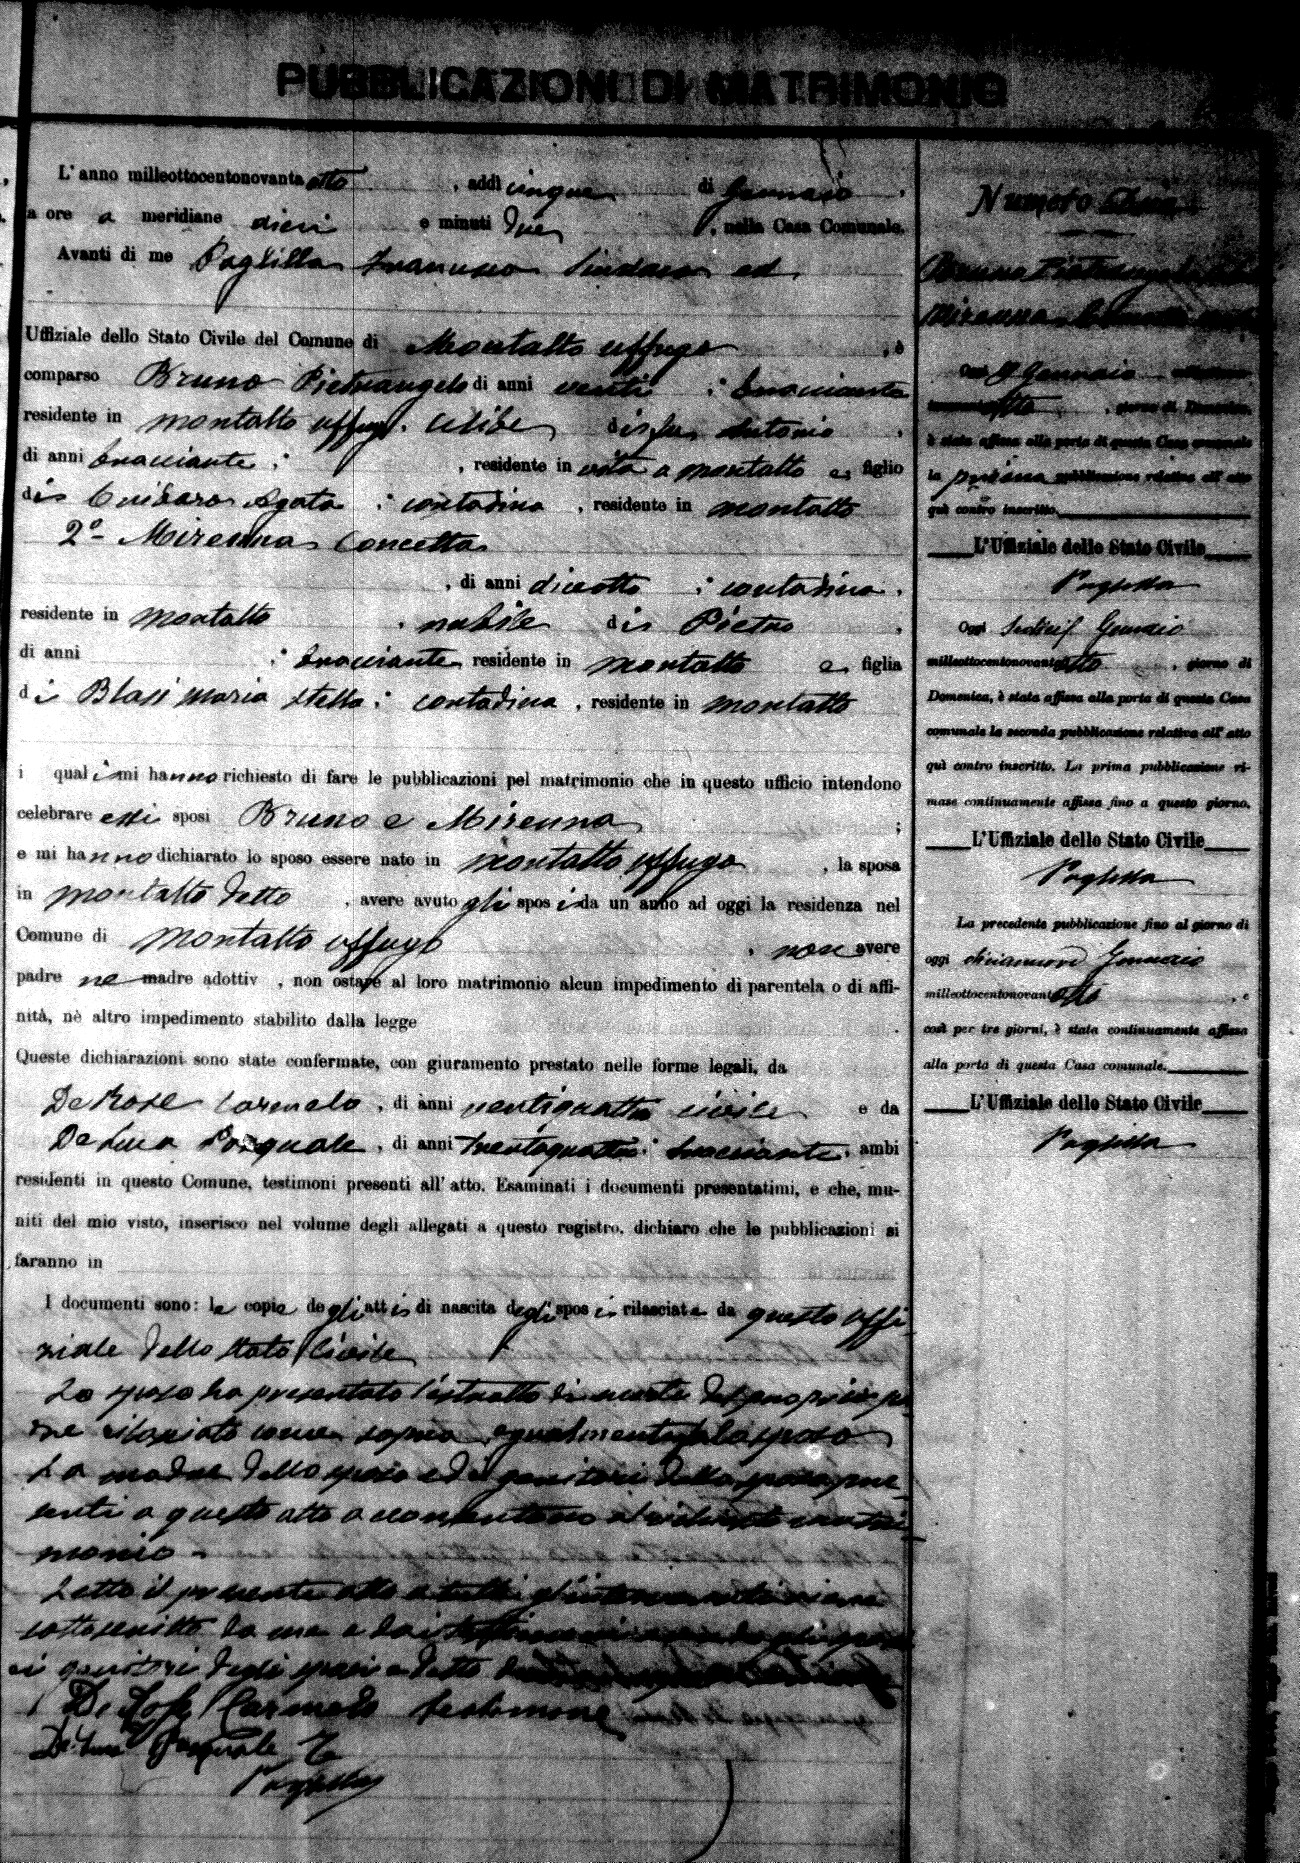 PUBBLICAZIONI DI MATRIMONIO
L'anno milleottocentonovanta otto , addì cinque di Gennaio ,
a ore a meridiane dieci e minuti due , nella Casa Comunale.
Avanti di me Paglilla Francesco Sindaco ed
Uffiziale dello Stato Civile del Comune di Montalto uffugo , è
comparso Bruno Pietrangelo di anni venti ; bracciante
residente in montalto uffugo . celibe di fu Antonio ,
di anni bracciante ; , residente in vita a montalto e figlio
di Agata ; contadina , residente in montalto
2º - Mirenna Concetta
, di anni diciotto ; contadina ,
residente in montalto , nubile di Pietro ,
di anni ; bracciante residente in montalto e figlia
di Blasi maria stella ; contadina , residente in montalto
i quali mi hanno richiesto di fare le pubblicazioni pel matrimonio che in questo ufficio intendono
celebrare essi sposi Bruno e Mirenna ;
e mi hanno dichiarato lo sposo essere nato in montalto uffugo , la sposa
in montalto detto , avere avuto gli sposi da un anno ad oggi la residenza nel
Comune di Montalto uffugo , non avere
padre ne madre adottiv , non ostare al loro matrimonio alcun impedimento di parentela o di affi-
nità, nè altro impedimento stabilito dalla legge .
Queste dichiarazioni sono state confermate, con giuramento prestato nelle forme legali, da
De Rose Carmelo , di anni ventiquattro civile e da
De Luca Pasquale , di anni trentaquattro ; bracciante , ambi
residenti in questo Comune, testimoni presenti all'atto. Esaminati i documenti presentatimi, e che, mu-
niti del mio visto, inserisco nel volume degli allegati a questo registro, dichiaro che le pubblicazioni si
faranno in
I documenti sono: le copie degli atti di nascita degli sposi rilasciate da questo uffi
ziale dello stato civile
Lo sposo ha presentato l'estratto di morte del proprio pa
dre rilasciato come sopra
La madre dello sposo ed i genitori della sposa pre
senti a questo atto acconsentono al richiesto matri
monio -
Letto il presente atto a tutti gl'intervenuti viene
sottoscritto da me e dai testimoni
i genitori degli sposi
De Rose Carmelo testimone
De Luca Pasquale T
Paglilla
Numero Due
Bruno Pietrangelo
Mirenna Concetta
Oggi 9 Gennaio milleotto-
centonovantotto , giorno di Domenica,
è stata affissa alla porta di questa Casa comunale
la prima pubblicazione relativa all'atto
quì contro inscritto.
L'Uffiziale dello Stato Civile
Paglilla
Oggi Sedici Gennaio
milleottocentonovantotto , giorno di
Domenica, è stata affissa alla porta di questa Casa
comunale la seconda pubblicazione relativa all'atto
quì contro inscritto. La prima pubblicazione ri-
mase continuamente affissa fino a questo giorno.
L'Uffiziale dello Stato Civile
Paglilla
La precedente pubblicazione fino al giorno di
oggi diciannove Gennaio
milleottocentonovantotto , e
così per tre giorni, è stata continuamente affissa
alla porta di questa Casa comunale.
L'Uffiziale dello Stato Civile
Paglilla